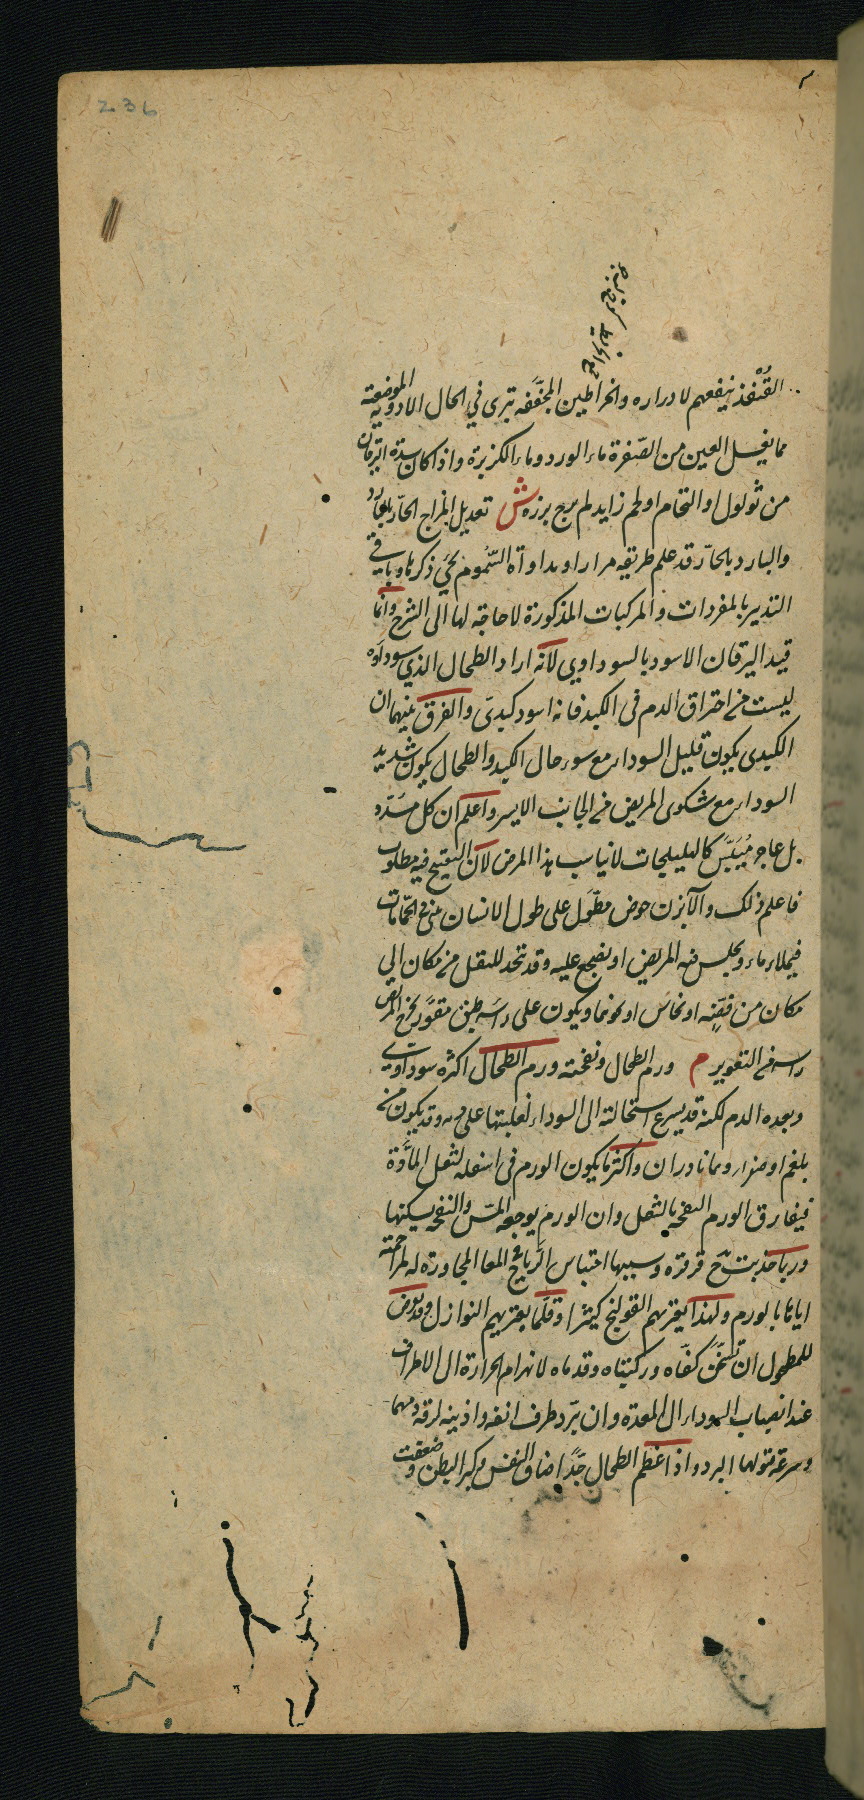 236
القُنْفُذ ينفعهم لادراره والخراطين المجفّفه تبرى في الحال الادوية الموضعية
مما يغسل العين من الصّفرة ماء الورد وماء الكزبرة واذا كان سدة اليرقان
من ثولول او التحام او لحم زايد لم يرج برزه ش تعديل المزاج الحارّ بالبارد
والبارد بالحارّ قد علم طريقه مرارا ومداواة السّموم يجئ ذكرها وباقي
التدبير بالمفردات والمركبات المذكورة لا حاجة لها الى الشرح وانّما
قيد اليرقان الاسود بالسوداوي لانه اراد الطحال الذي سوداوه
ليست من احتراق الدم في الكبد فانه اسود كبديّ والفرق بينهما ان
الكبدي يكون قليل السواد مع سوء حال الكبد والطحال يكون شديد
السواد مع شكوى المريض في الجانب الايسر واعلم ان كل مسَدّد
بل عاصر مُيَبِّس كالهليلجات لا يناسب هذا المرض لان التفتيح فيه مطلوب
فاعلم ذلك والآبزن حوض مطوّل على طول الانسان يبنى في الحمّامات
فيملاء ماء ويجلس فيه المريض او يضجع عليه وقد تتخذ للنقل من مكان الى
مكان من فضّة او نحاس او نحوهما ويكون على راسه طبق مقوّر يخرج المريض
راسه في التقوير م ورم الطحال ونفخته ورم الطحال اكثره سوداوي
وبعده الدم لكنه قد يسرع استحالته الى السوداء لغلبتها عليه وقد يكون من
بلغم او صفراء وهما نادران واكثر ما يكون الورم في اسفله لثقل المادّة
فيفارق الورم النفخه بالثقل وان الورم يوجعه المسّ والنفخه يسكنها
وربما حذبت مع قرقرة وسببها احتباس الرياح في المعا المجاورة له لمزاحمته
اياها بالورم ولهذا يعتريهم القولنج كثيرا وقلّما يعتريهم النوازل وقد يعرض
للمطحول ان تسخن كفّاه وركبتاه وقدماه لانهزام الحرارة الى الاطراف
عند انصباب السوداء الى المعدة وان تبرد طرف انفه واذنيه لرقة دمهما
وسرعة قبولهما البرد واذا عظم الطحال جدًّا ضاق النفس وكبر البطن وضعفت